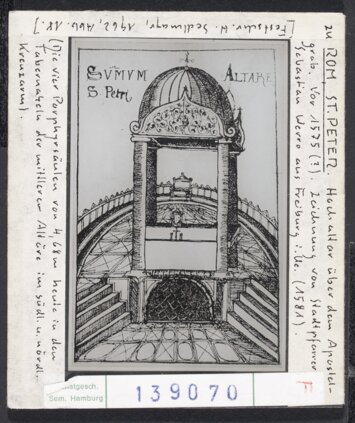 [Festschr. H. Sedlmayr, 1962, Abb. 18.]
zu ROM ST. PETER. Hochaltar über dem Apostel-
grab. Vor 1575 (?). Zeichnung von Stadtpfarrer
Sebastian Werro aus Freiburg i. Ue. (1581).
SVMVM ALTARE
S. Petri
(Die vier Porphyrsäulen von 4,68m heute in den
Tabernakeln der mittleren Altäre im südl. u. nördl.
Kreuzarm).
Kunstgesch.
Sem. Hamburg
139070
F